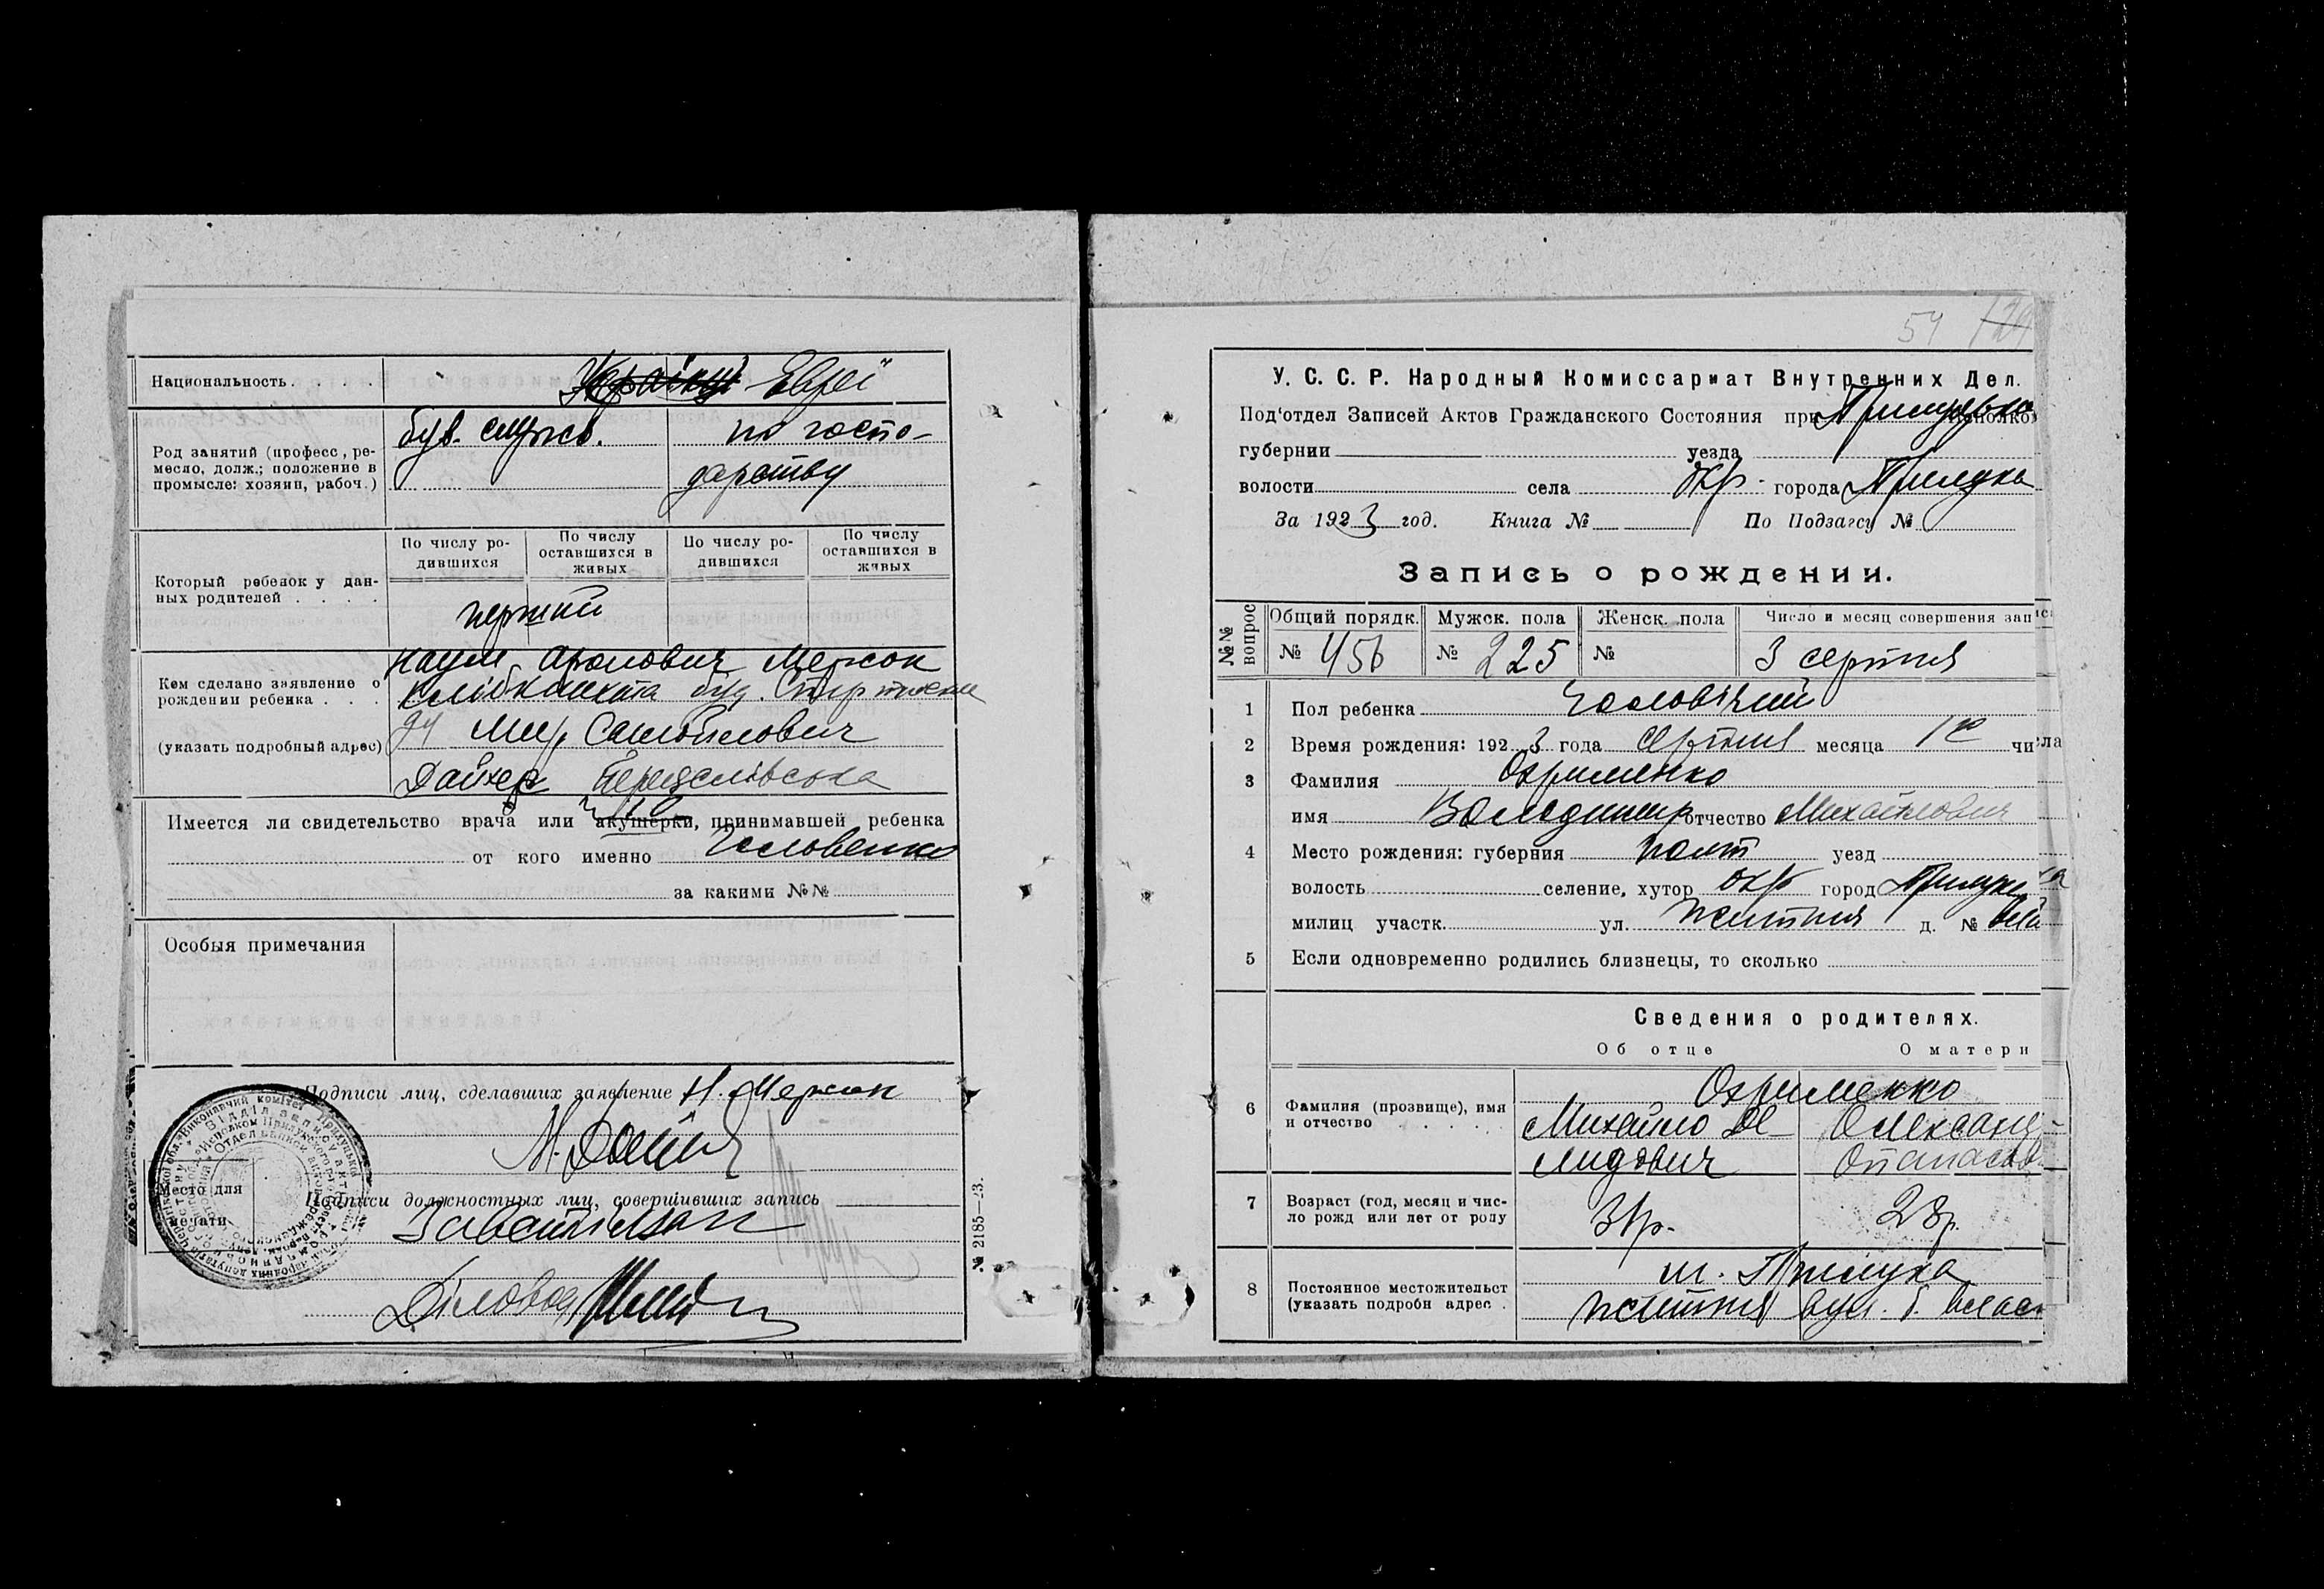 Национальность. . . . . Українці Евреї
Род занятий (професс, ре-
месло, долж.; положение в
промысле: хозяин, рабоч.)
був. служб.
по госпо-
дарству
Который ребенок у дан-
ных родителей . . . .
По числу ро-
дившихся
По числу
оставшихся в
живых
По числу ро-
дившихся
По числу
оставшихся в
живых
перший
Кем сделано заявление о
рождении ребенка . . .
(указать подробный адрес)
Наум Аронович Мерсон
буд.
Самойлович
Имеется ли свидетельство врача или акушерки, принимавшей ребенка
от кого именно
за какими №№
Особыя примечания
Подписи лиц, сделавших заявление Н. Мерсон
Место для
печати
Подписи должностных лиц, совершивших запись
Завсит
Діловод
№ 2185—23.
54 124
У. С. С. Р. Народный Комиссариат Внутренних Дел.
Под'отдел Записей Актов Гражданского Состояния при
губернии уезда
волости села окр. города Прилука
За 1923 год. Книга № По Подзагсу №
Запись о рождении.
№№
вопрос
Общий порядк.
№ 456
Мужск. пола
№ 225
Женск. пола
№
Число и месяц совершения запис
3 серпня
1 Пол ребенка Чоловічий
2 Время рождения: 1923 года серпня месяца 1го числа
3 Фамилия Охрименко
имя Володимир отчество Михайлович
4 Место рождения: губерния Полт уезд
волость селение, хутор окр город Прилука
милиц участк. ул. Житня д. №
5 Если одновременно родились близнецы, то сколько
Сведения о родителях.
Об отце О матери
6 Фамилия (прозвище), имя
и отчество . . . . .
Охрименко
Михайло Де-
мидович
Олександ-
Опанасов
7 Возраст (год, месяц и чис-
ло рожд или лет от роду
31р.
28р.
8 Постоянное местожительст
(указать подробн адрес .
м. Прилука
Житня вул. б. власн